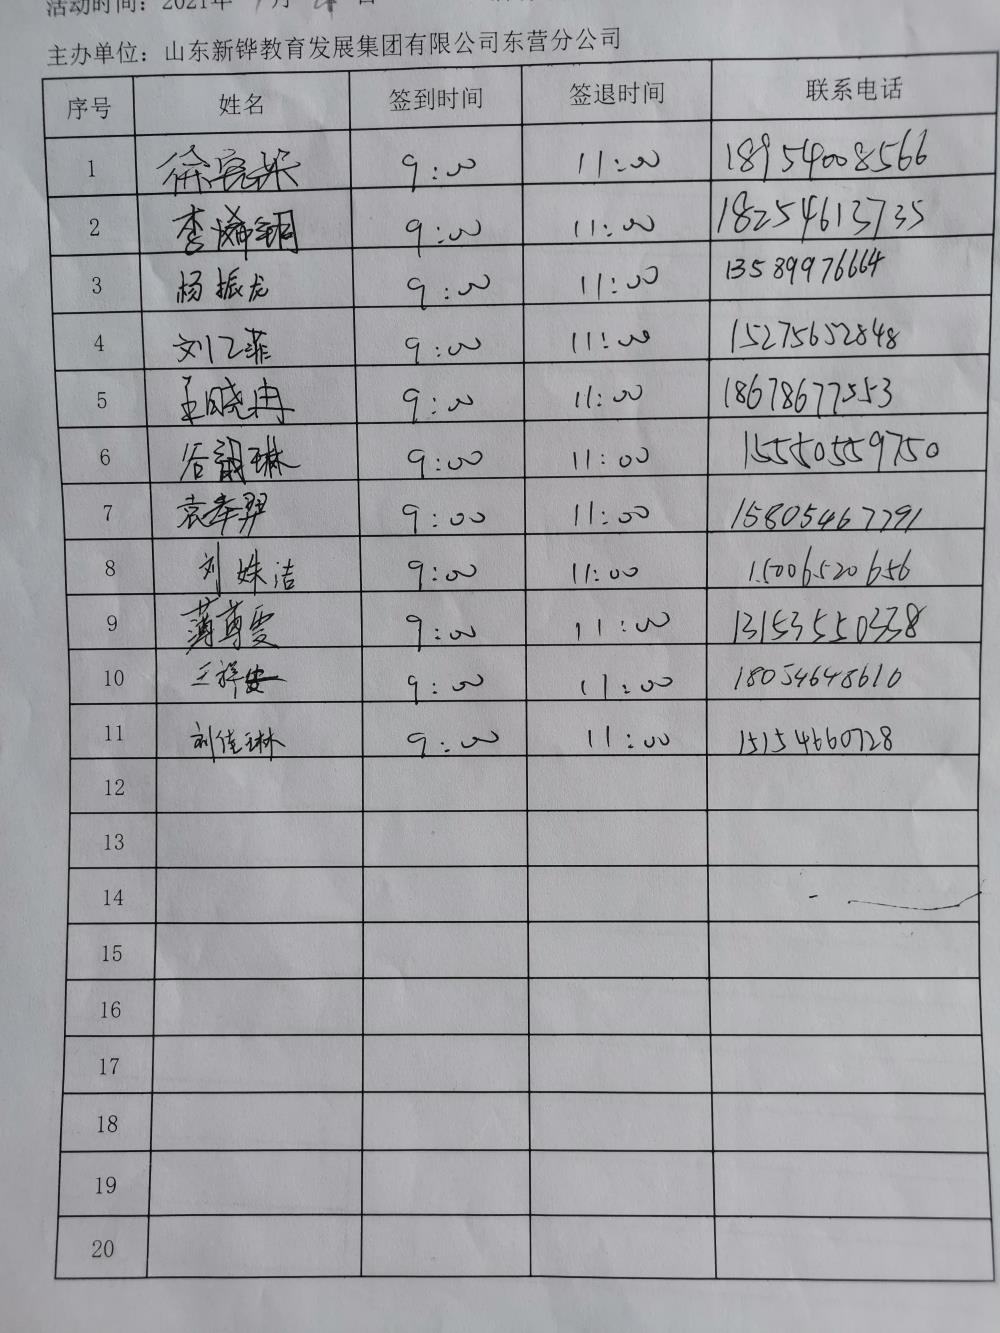 活动时间：2021年 月 日
主办单位：山东新铧教育发展集团有限公司东营分公司
序号 姓名 签到时间 签退时间 联系电话
1 9:00 11:00 18954008566
2 9:00 11:00 18254613735
3 杨振龙 9:00 11:00 13589976664
4 刘乙菲 9:00 11:00 15275652848
5 王晓冉 9:00 11:00 18678677553
6 9:00 11:00 15550559750
7 袁奉羿 9:00 11:00 15805467791
8 刘姝洁 9:00 11:00 15006520656
9 薄尊雯 9:00 11:00 13153550338
10 9:00 11:00 18054648610
11 刘佳琳 9:00 11:00 15154660728
12
13
14
15
16
17
18
19
20